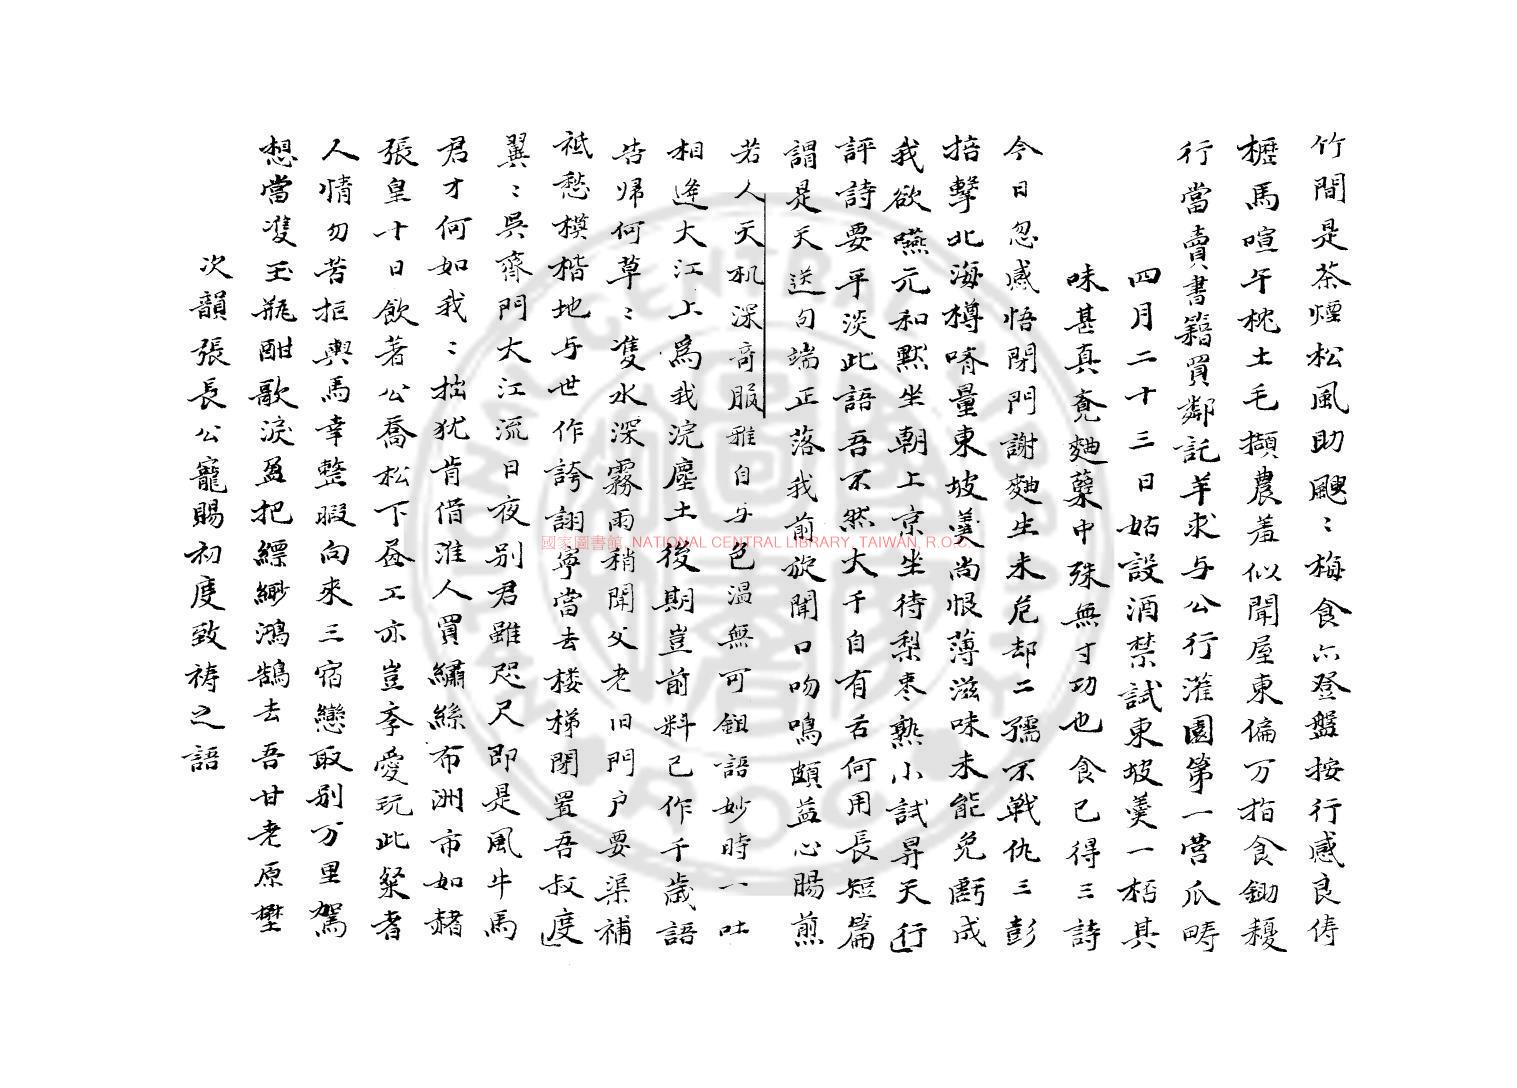 竹間是茶煙松風助颼〻梅食六登盤按行感良俦
櫪馬喧午枕土毛擷農羞似聞屋東偏万指食鋤耰
行當賣書籍買鄰託羊求与公行灌園第一营瓜畴
四月二十三日姑設酒禁試東坡羹一杯其
味甚真夐麯蘖中殊無寸功也食已得三詩
今日忽感悟閉門謝麯生未危却二孺不戦仇三彭
掊擊北海樽嗜量東坡羹尚恨薄滋味未能免虧成
我欲嚥元和黙坐朝上京坐待梨枣熟小試昇天行
評詩要平淡此語吾不然大千自有舌何用長短篇
謂是天送句端正落我前旋聞口吻鳴頗益心腸煎
若人天机深奇服雅自与色温無可鉏語妙時一吐
相逢大江上為我浣塵土後期豈前料已作千歳語
告歸何草〻隻水深霧雨稍聞父老旧門户要渠補
祗愁模楷地与世作誇詡寧當去楼梯閉置吾叔度
翼〻吳齊門大江流日夜别君雖咫尺即是風牛馬
君才何如我〻拙犹肯借淮人買繡絲布洲市如赭
張皇十日飲著公喬松下昼工亦豈辜愛玩此粲者
人情勿苦拒輿馬幸整暇向來三宿戀取别万里駕
想當凌玉瓶酣歌淚盈把縹緲鴻鵠去吾甘老原壄
次韻張長公寵賜初度致祷之語
國家圖書館, NATIONAL CENTRAL LIBRARY, TAIWAN, R.O.C